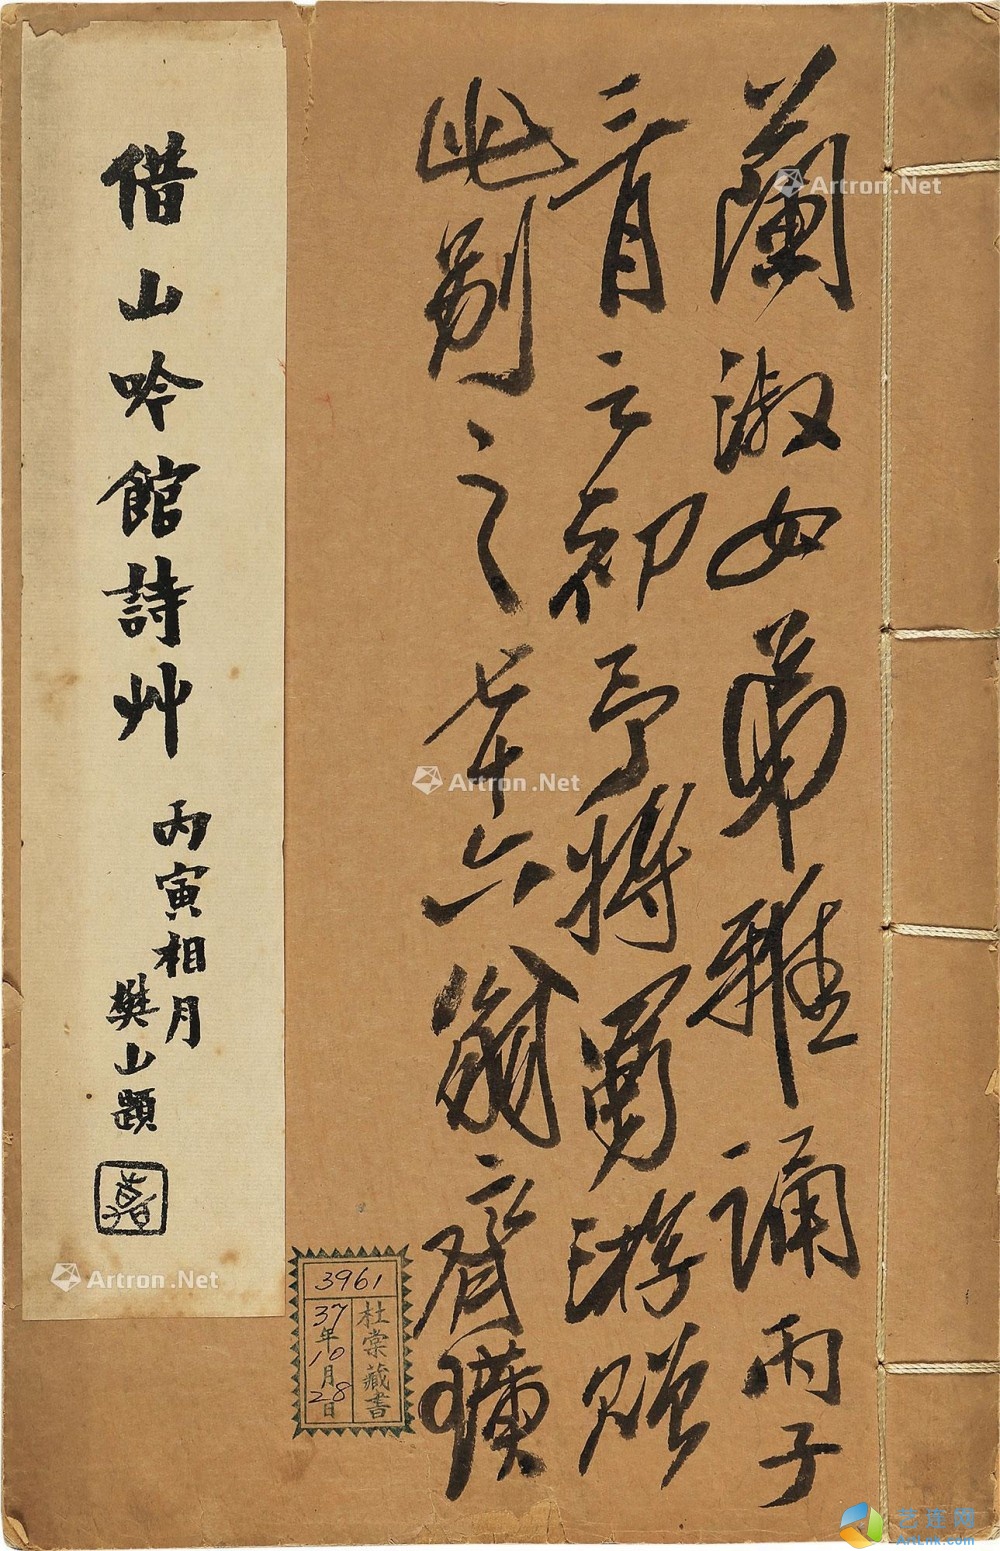 蘭淑女弟雅誦丙子
三月之初予將蜀游贈
此别之七十六翁齊璜
借山吟館詩艸
丙寅相月
樊山題
3961
杜棠藏書
37年10月28日
Artron.Net
Artron.Net
Artron.Net
艺连网
Artlnk.com